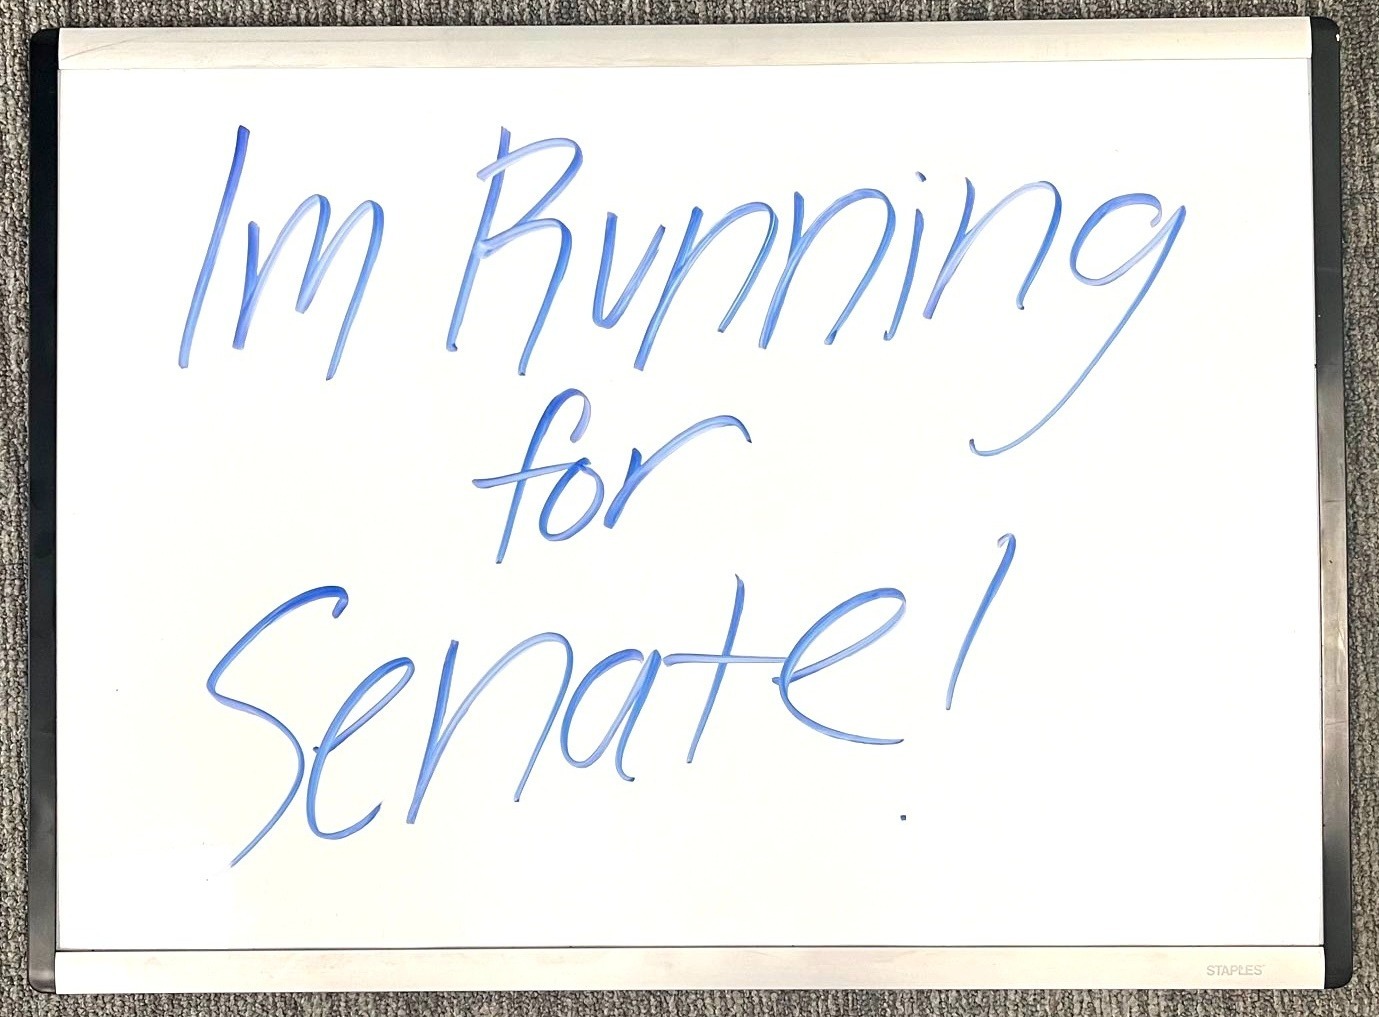 Im Running
for
Senate!
STAPLES